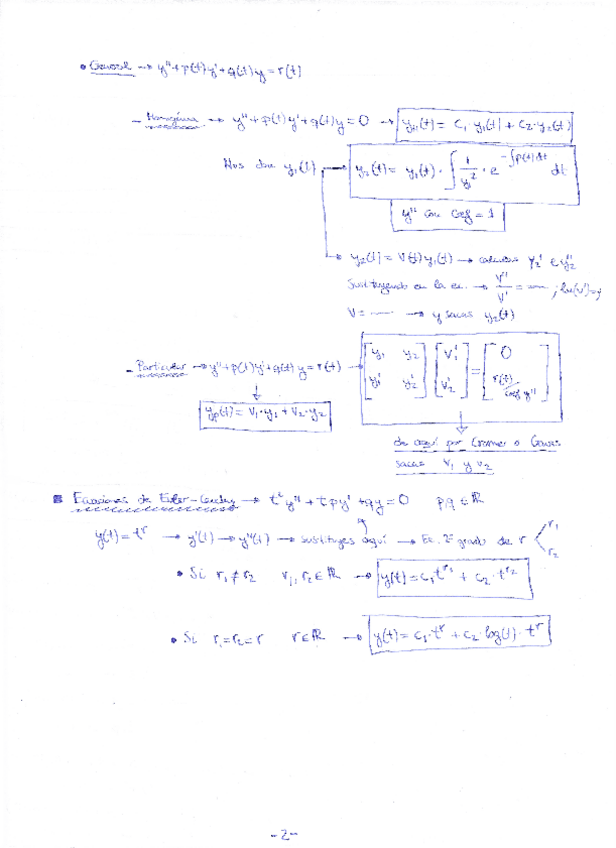 • General → y'' + p(t)y' + q(t)y = r(t)
- Homogénea → y'' + p(t)y' + q(t)y = 0 → y_H(t) = C₁·y₁(t) + C₂·y₂(t)
Nos dan y₁(t) → y₂(t) = y₁(t)·∫ 1/y₁² · e^(-∫p(t)dt) dt
y'' con coef = 1
→ y₂(t) = V(t)y₁(t) → calculas y₂' e y₂''
Sustituyendo en la ec. → V''/V' = —— ; log(V') =
V = —— → y sacas y₂(t)
- Particular → y'' + p(t)y' + q(t)y = r(t) → [y₁ y₂; y₁' y₂'] [V₁'; V₂'] = [0; r(t)/coef y'']
y_p(t) = V₁·y₁ + V₂·y₂
de aquí por Cramer o Gauss
sacas V₁ y V₂
■ Ecuaciones de Euler-Cauchy → t²y'' + t p y' + q y = 0 p, q ∈ ℝ
y(t) = t^r → y'(t) → y''(t) → sustituyes aquí → Ec. 2º grado de r < r₁ r₂
• Si r₁ ≠ r₂ r₁, r₂ ∈ ℝ → y(t) = C₁t^r₁ + C₂·t^r₂
• Si r₁ = r₂ = r r ∈ ℝ → y(t) = C₁·t^r + C₂·log(t)·t^r
-2-